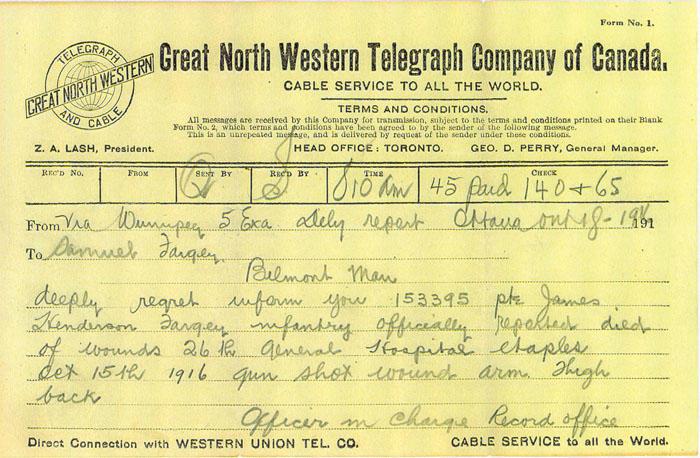 Form No. 1.
TELEGRAPH
GREAT NORTH WESTERN
AND CABLE
Great North Western Telegraph Company of Canada.
CABLE SERVICE TO ALL THE WORLD.
TERMS AND CONDITIONS.
All messages are received by this Company for transmission, subject to the terms and conditions printed on their Blank
Form No. 2, which terms and conditions have been agreed to by the sender of the following message.
This is an unrepeated message, and is delivered by request of the sender under these conditions.
Z. A. LASH, President. HEAD OFFICE: TORONTO. GEO. D. PERRY, General Manager.
REC'D NO. FROM SENT BY REC'D BY TIME CHECK
810 45 paid 140 + 65
From Via Winnipeg 5 Exa Dely report Ottawa ont 18 - 191
To Samuel Fargey
Belmont Man
deeply regret inform you 153395 pte James
Henderson Fargey infantry officially reported died
of wounds 26th General Hospital etaples
Oct 15th 1916 gun shot wound arm thigh
back
Officer in Charge Record office
Direct Connection with WESTERN UNION TEL. CO. CABLE SERVICE to all the World.